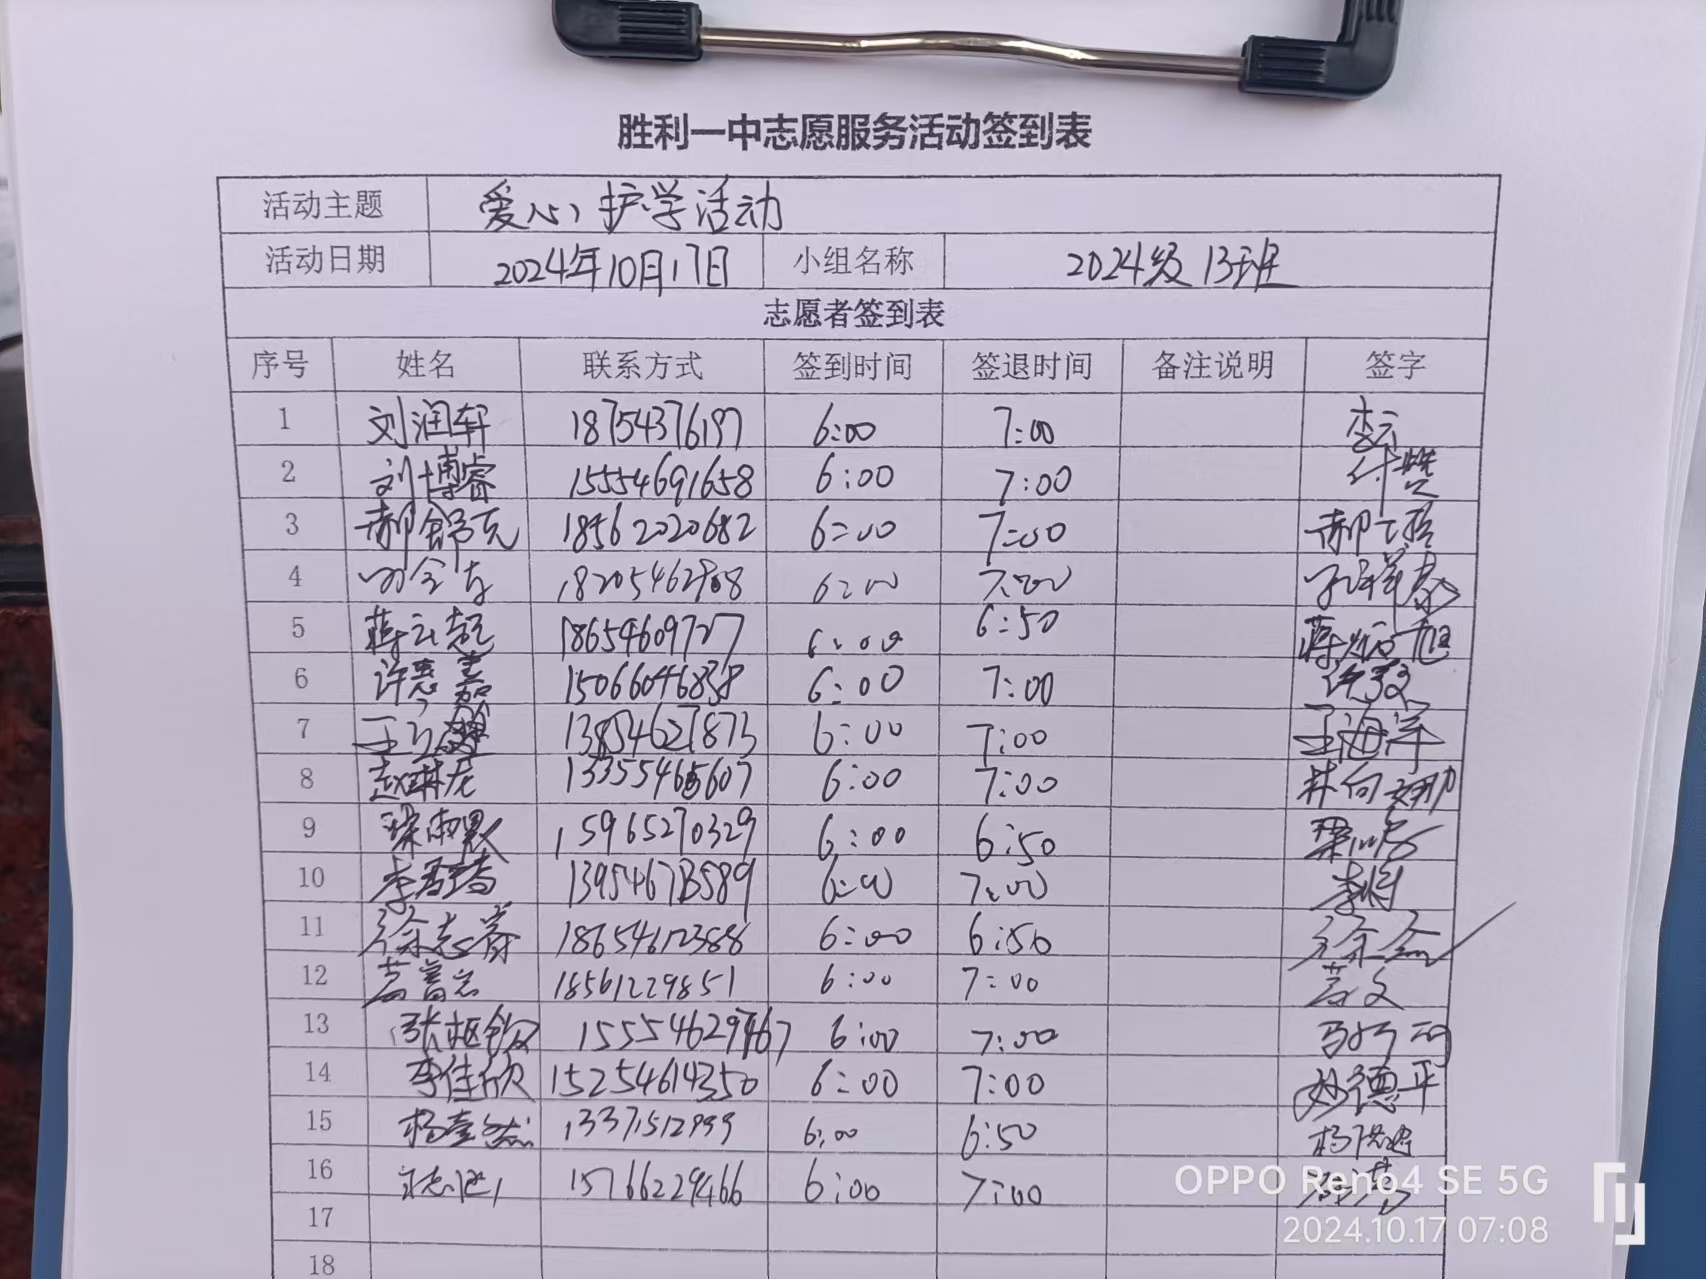 胜利一中志愿服务活动签到表
活动主题 爱心护学活动
活动日期 2024年10月17日 小组名称 2024级13班
志愿者签到表
序号 姓名 联系方式 签到时间 签退时间 备注说明 签字
1 刘润轩 18754376197 6:00 7:00 李云
2 刘博睿 15554691658 6:00 7:00 付赞
3 郝舒克 18562020682 6:00 7:00
4 6:00 7:00
5 蒋云超 18654609727 6:00 6:50
6 许惠嘉 15066046838 6:00 7:00
7 13854627873 6:00 7:00 王海洋
8 赵琳龙 13355465607 6:00 7:00 林向娜
9 梁雨默 15965270329 6:00 6:50
10 6:00 7:00
11 徐志睿 18654612388 6:00 6:50
12 18561229851 6:00 7:00
13 15554629467 6:00 7:00
14 李佳欣 15254614350 6:00 7:00
15 6:00 6:50
16 15766229466 6:00 7:00
17
18
OPPO Reno4 SE 5G
2024.10.17 07:08